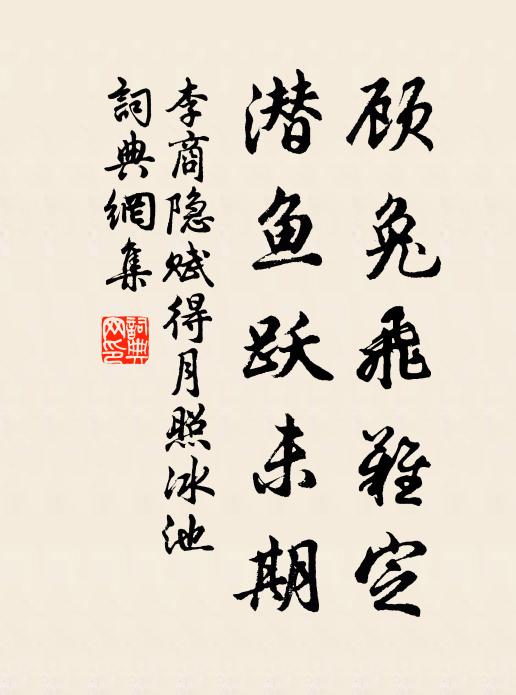 顾兔飛難定
潜鱼跃未期
李商隐赋得月照冰池
詞典網集
詞典网印